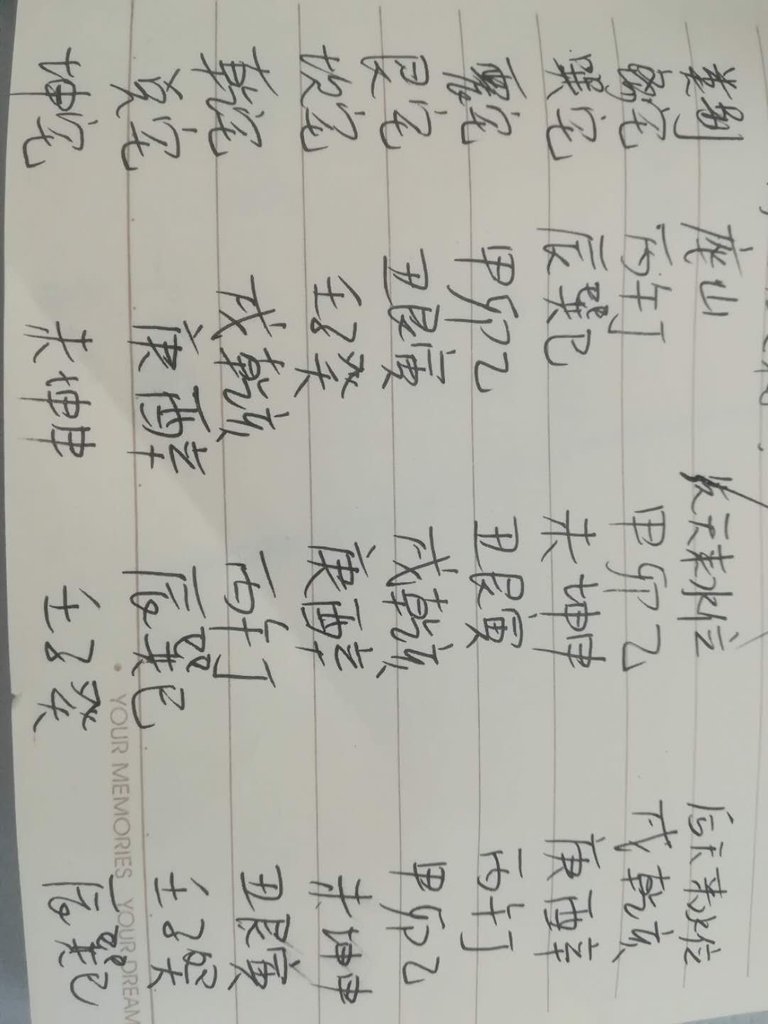 类别 座山 先天来水位 后天来水位
離宅 丙午丁 甲卯乙 戌乾亥
巽宅 辰巽巳 未坤申 庚酉辛
震宅 甲卯乙 丑艮寅 丙午丁
艮宅 丑艮寅 戌乾亥 甲卯乙
坎宅 壬子癸 庚酉辛 未坤申
乾宅 戌乾亥 丙午丁 丑艮寅
兑宅 庚酉辛 辰巽巳 壬子癸
坤宅 未坤申 壬子癸 辰巽巳
YOUR MEMORIES YOUR DREAM